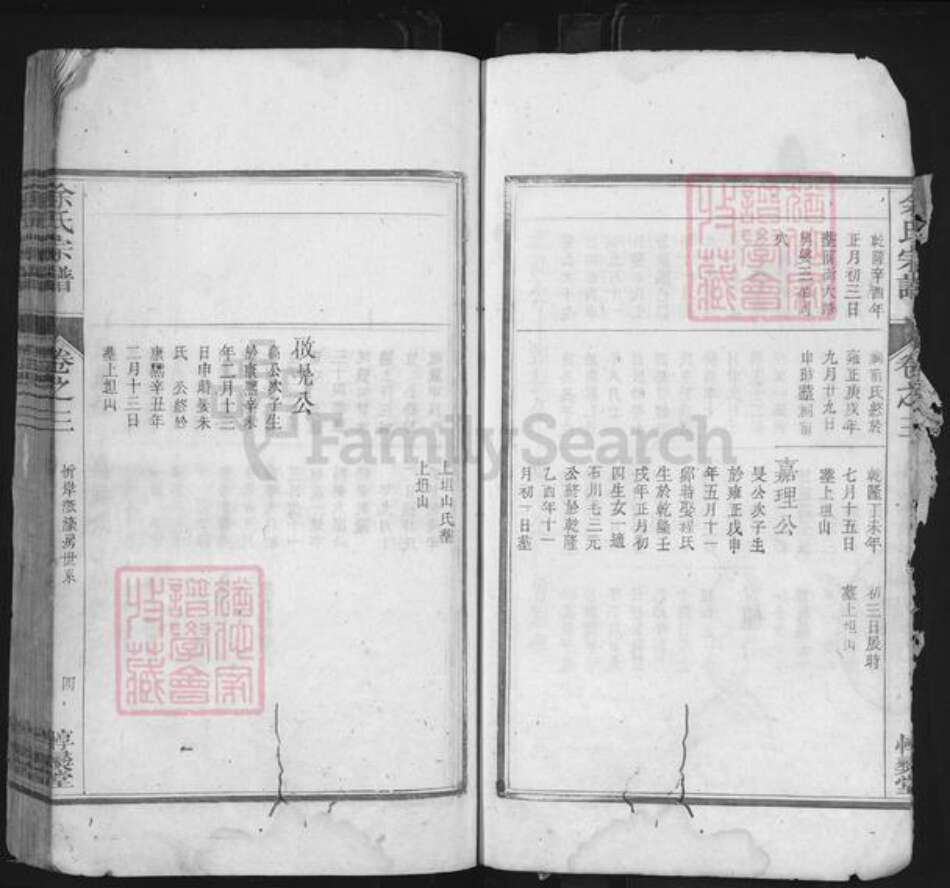 余氏宗譜
卷之三
乾隆辛酉年
正月初三日
穴
氏終於
雍正庚戌年
九月廿九日
申時葬
乾隆丁未年
七月十五日
葬上坦山
初三日辰時
葬上坦山
嘉理公
旻公次子生
於雍正戊申
年五月十一
氏
生於乾隆壬
戌年正月初
四生女一適
石川毛三元
公終於乾隆
乙酉年十一
月初一日葬
上坦山氏葬
上坦山
公
公次子生
於康熙辛未
年二月十三
日申時娶朱
氏 公終於
康熙辛丑年
三月十三日
葬上坦山
余氏宗譜
卷之三
世系
四
惇義堂
譜學會
收藏
FamilySearch